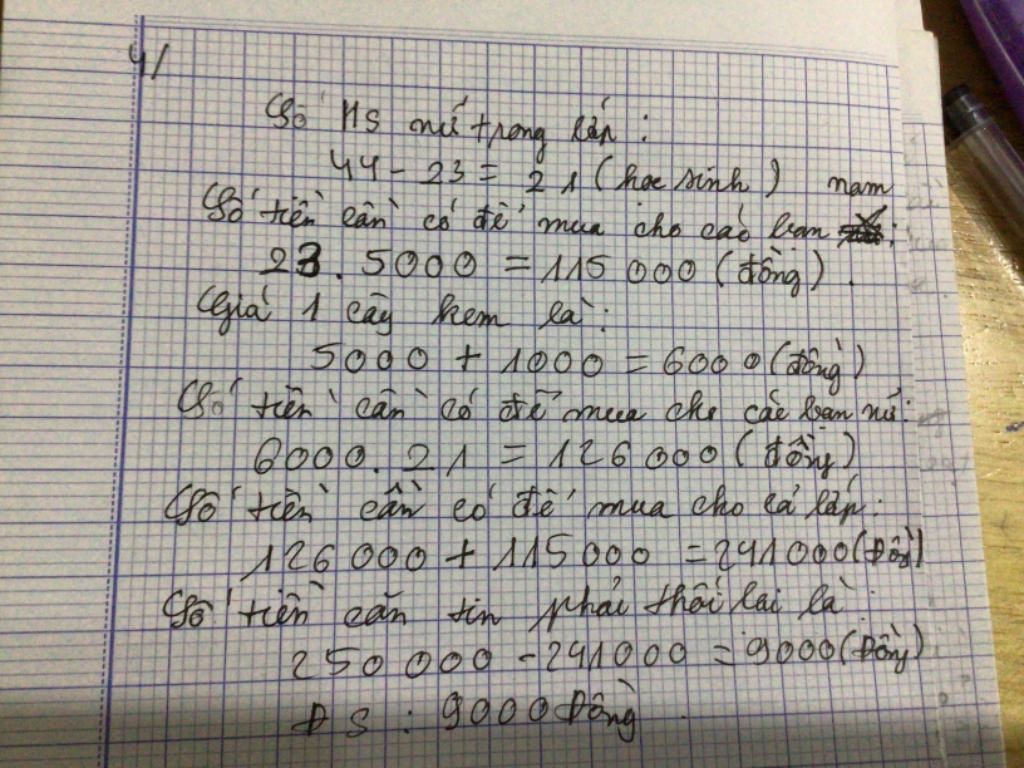 4/
Số HS nữ trong lớp :
44 - 23 = 21 (học sinh)
Số tiền cần có để mua cho các bạn nam :
23 . 5000 = 115 000 (đồng) .
Giá 1 cây kem là :
5000 + 1000 = 6000 (đồng)
Số tiền cần có để mua cho các bạn nữ :
6000 . 21 = 126 000 (đồng)
Số tiền cần có để mua cho cả lớp :
126 000 + 115 000 = 241 000 (Đồng)
Số tiền căn tin phải thối lại là :
250 000 - 241 000 = 9000 (Đồng)
ĐS : 9000 Đồng .